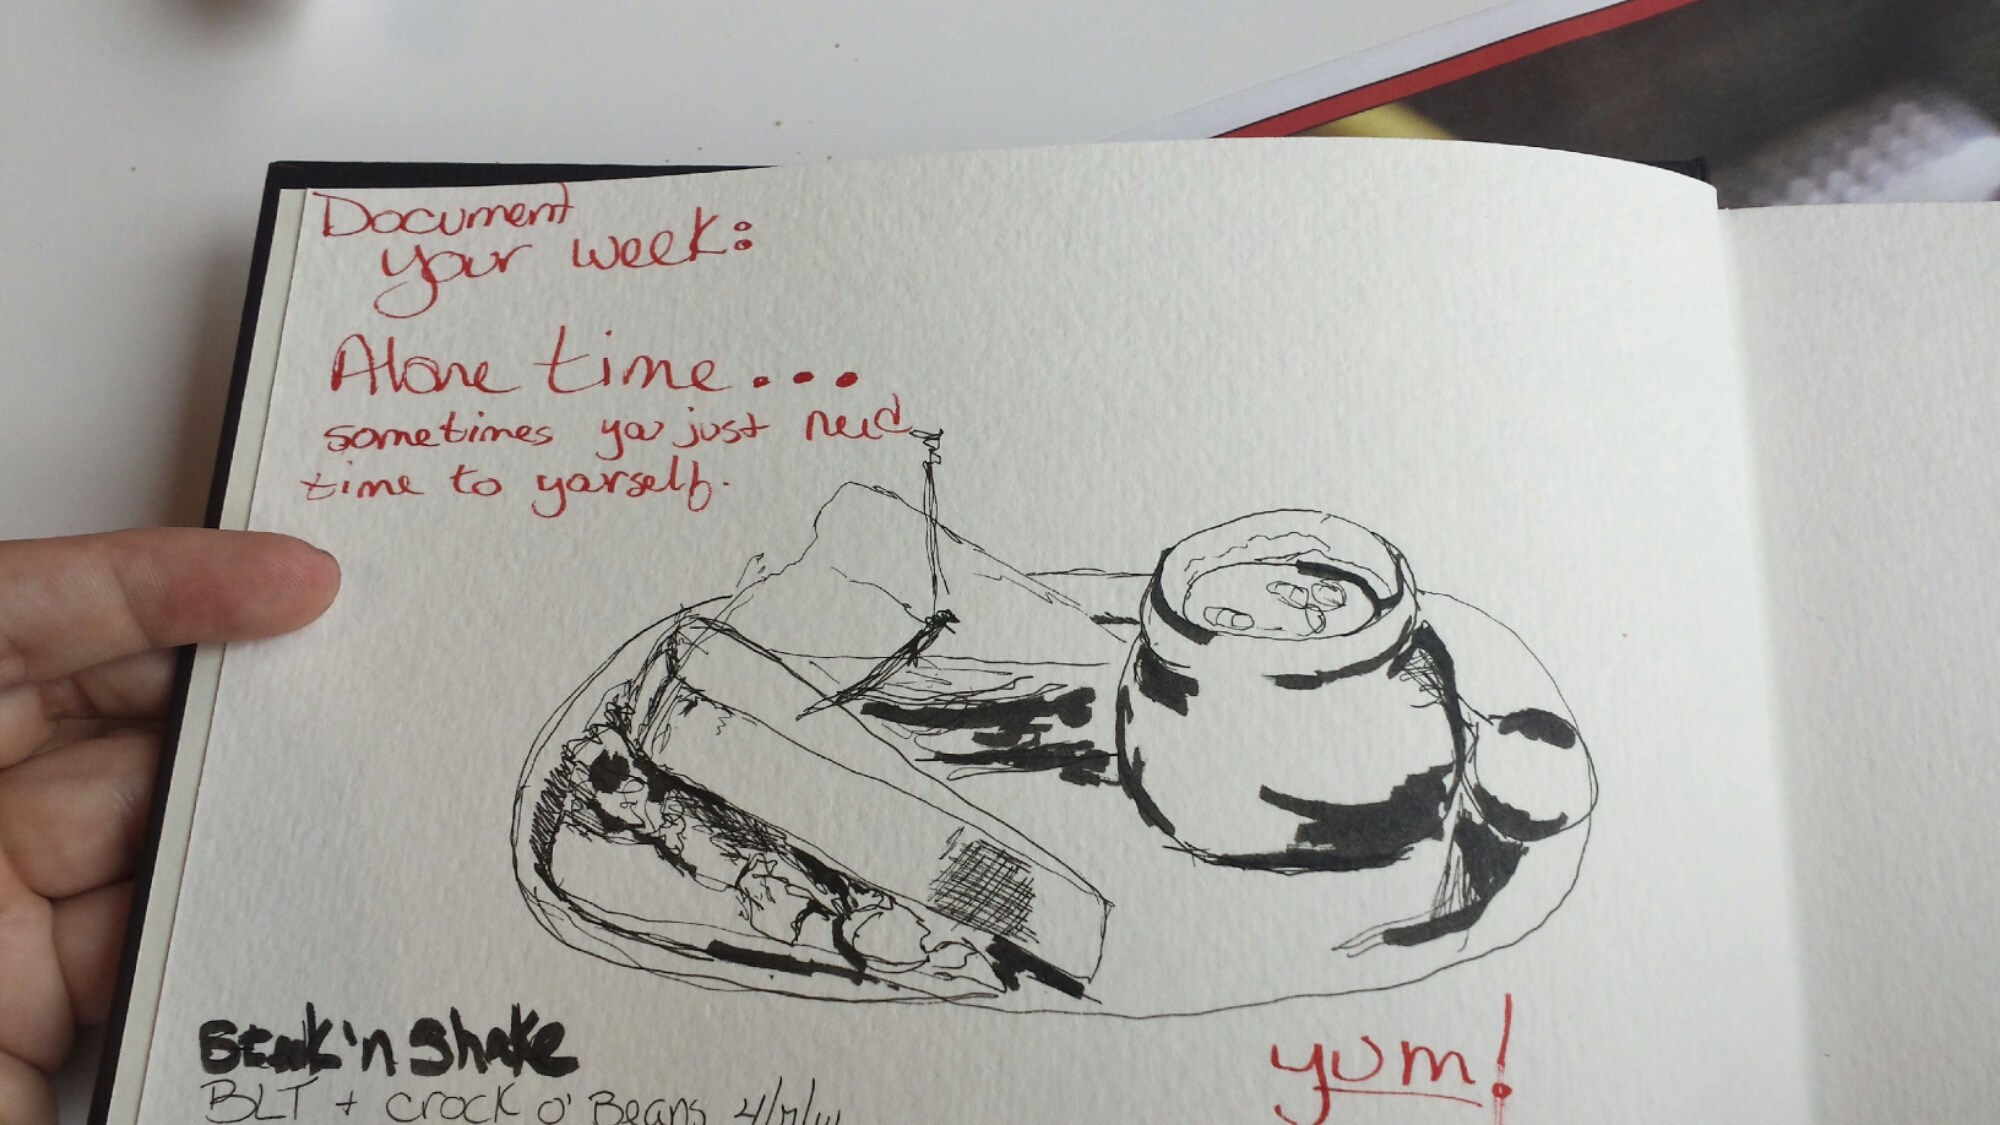 Document
your week:
Alone time...
sometimes you just need
time to yourself.
Steak 'n Shake
BLT + crock o' Beans
yum!